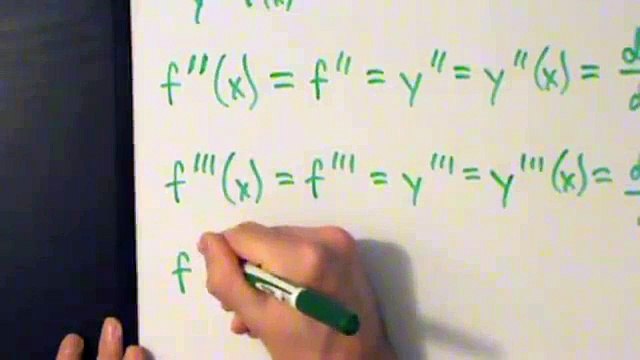 f''(x) = f'' = y'' = y''(x) =
f'''(x) = f''' = y''' = y'''(x) =
f